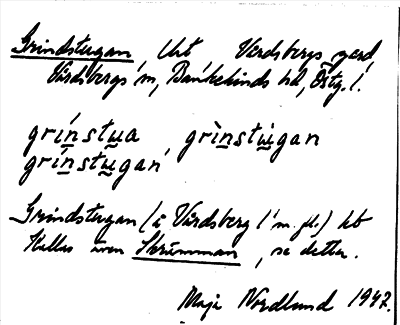 Grindstugan, tht Vårdsbergs gård
Vårdsbergs sn, Bankekinds hd, Östg. l.
grínstɯa, grìnstɯ̀gan
grínstɯgan
Grindstugan (i Vårdsberg
Kallas även Skrinman, se detta.
Maja Nordlund 1947.